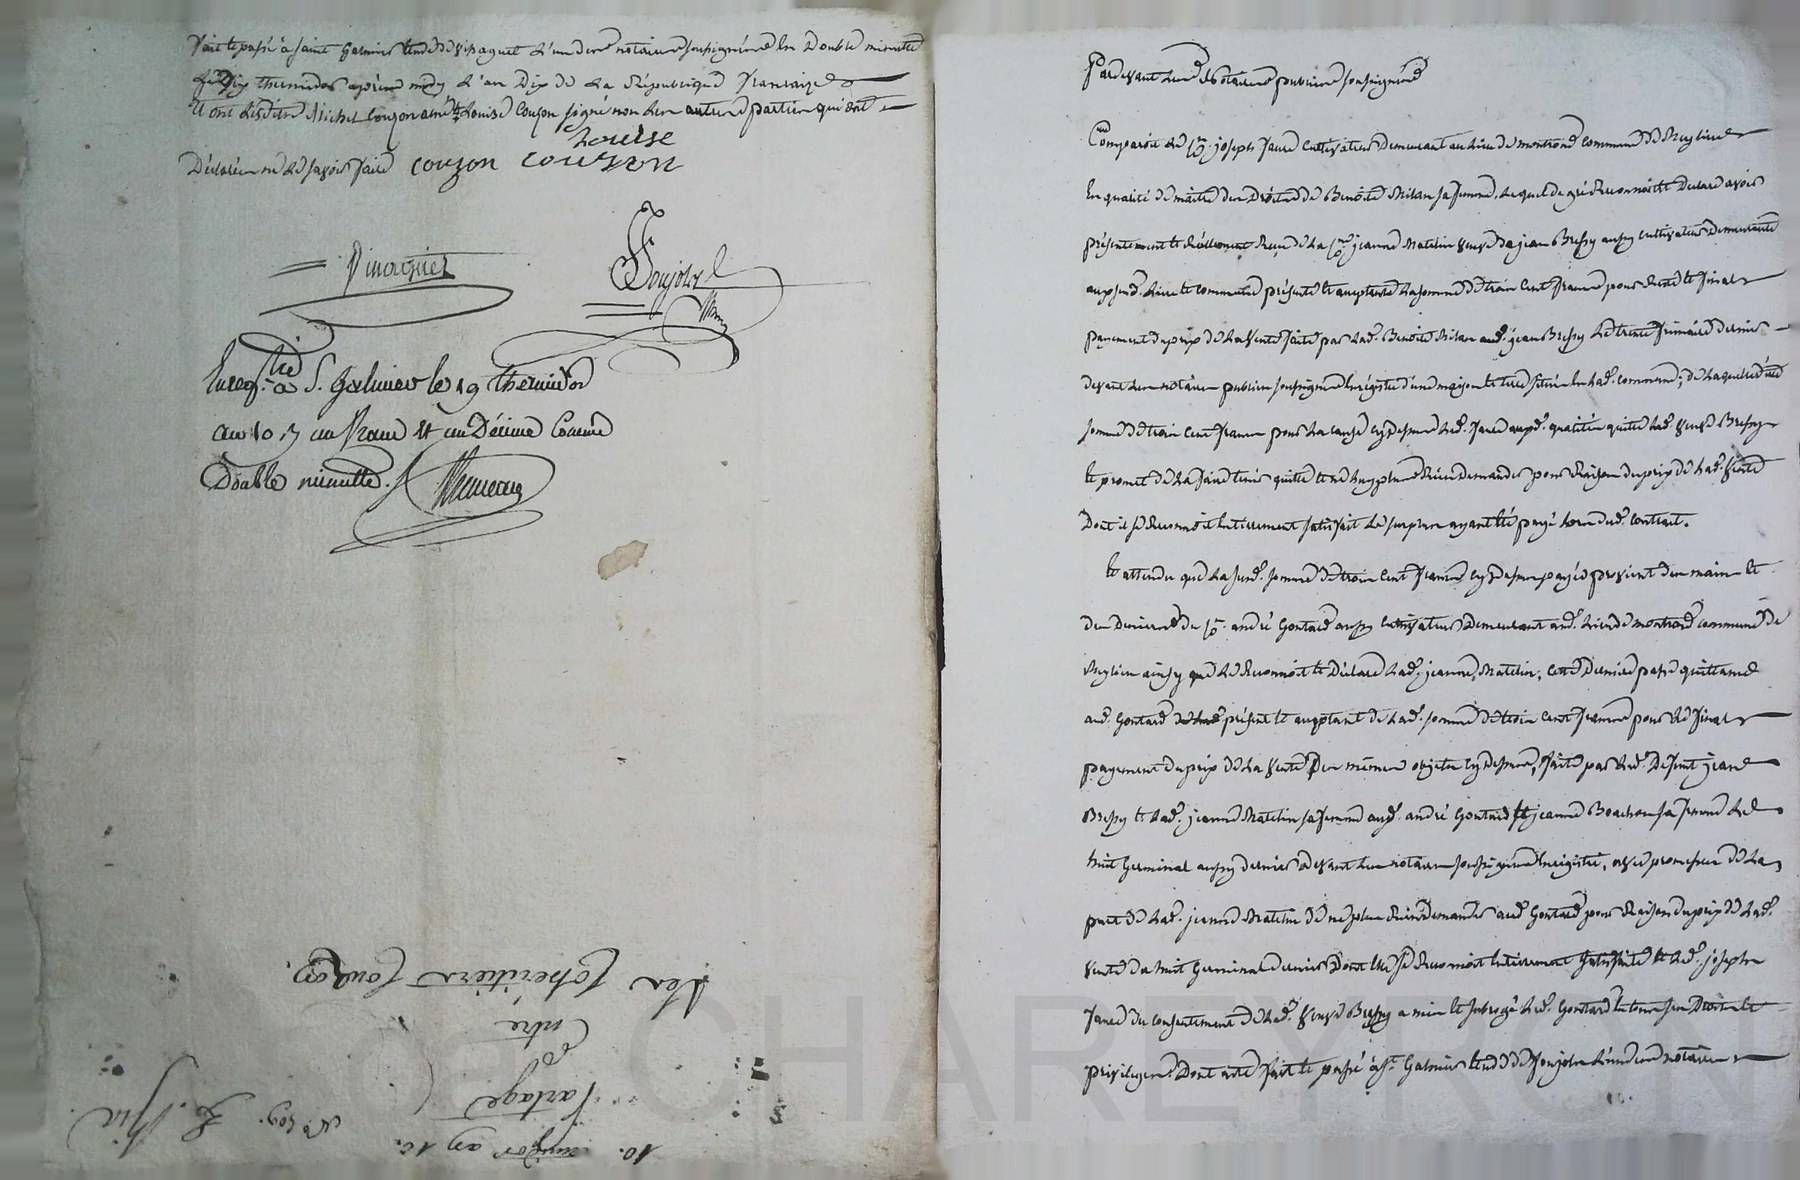 Fait et passé à Saint Galmier étude de Vinagnet l'un des notaires soussignés en double minute
le dix thermidor après midy l'an Dix de la République francaise
et ont lesdits Michel Couzon ainé et Louise Couzon signé non les autres parties qui ont
Déclarées ne le savoir faire couzon Louise couzon
Vinagnet
Soujolz
Enregtré à S. Galmier le 19 thermidor
an 10 un franc et un Décime Comme
Double minutte.
10. thermidor an 10.
Partage
Entre
Les Cohéritiers Couzon.
Pardevant les Notaires publics soussignés
Comparoit le Cn. joseph favre cultivateur Demeurant au lieu de montrond commune de Meylieu
En qualité de maître des Droits de Benoîte Milan sa femme, lequel de gré Reconnoit et Declare avoir
présentement et réellement Reçu de la Cne. jeanne Matelin veuve de jean Bressy aussy cultivateur Demeurante
auxsusd. lieu et commune présente et acceptante la somme de trois cent francs pour Reste et final
payement du prix de la vente faite par lad. Benoîte Milan aud. jean Bressy le trente frimaire dernier
devant les notaires publics soussignés Enregistré d'une maison et terre située en lad. commune; de laquelle dite
somme de trois cent francs pour la cause cy dessus led. favre auxd. qualités quitte lad. veuve Bressy
et promet de la faire tenir quitte et ne luy plus Rien demander pour Raison du prix de lad. vente
Dont il se Reconnoit Entièrement satisfait le surplus ayant été payé lors dud. contrat.
Et attendu que la susd. somme de trois cent francs cy dessus payée provient des mains et
des Deniers du Cn. andré Gontard aussy cultivateur Demeurant aud. lieu de montrond commune de
Meylieu ainsy que le Reconnoit et Declare lad. jeanne Matelin; cette Dernière passe quittance
aud. Gontard présent et acceptant de lad. somme de trois cent francs pour le final
payement du prix de la vente des mêmes objets cy dessus, faite par led. Defunt jean
Bressy et lad. jeanne Matelin sa femme aud. andré Gontard et jeanne Boachon sa femme le
huit Germinal aussy dernier devant les notaires soussignés Enregistré, avec promesse de la
part de lad. jeanne Matelin de ne plus Rien Demander aud. Gontard pour Raison du prix de lad.
vente du huit Germinal dernier Dont Elle se Reconnoit Entièrement satisfaite et led. joseph
favre du consentement de lad. veuve Bressy a mis et subrogé led. Gontard En tous ses Droits et
privilèges. Dont acte fait et passé à St. Galmier étude de Soujolz l'un des notaires
CHAREYRON